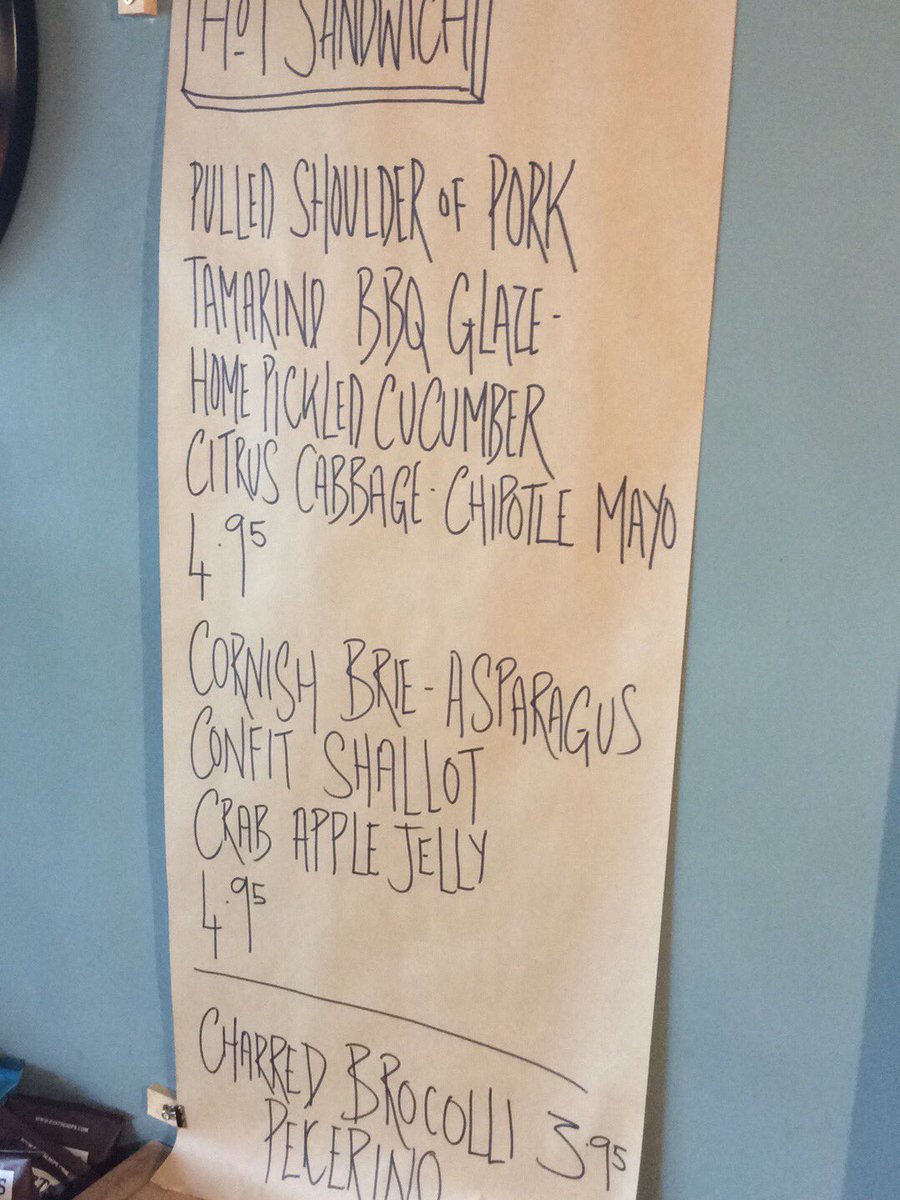 HOT SANDWICH
PULLED SHOULDER OF PORK
TAMARIND BBQ GLAZE-
HOME PICKLED CUCUMBER
CITRUS CABBAGE - CHIPOTLE MAYO
4.95
CORNISH BRIE - ASPARAGUS
CONFIT SHALLOT
CRAB APPLE JELLY
4.95
CHARRED BROCOLLI 3.95
PECERINO